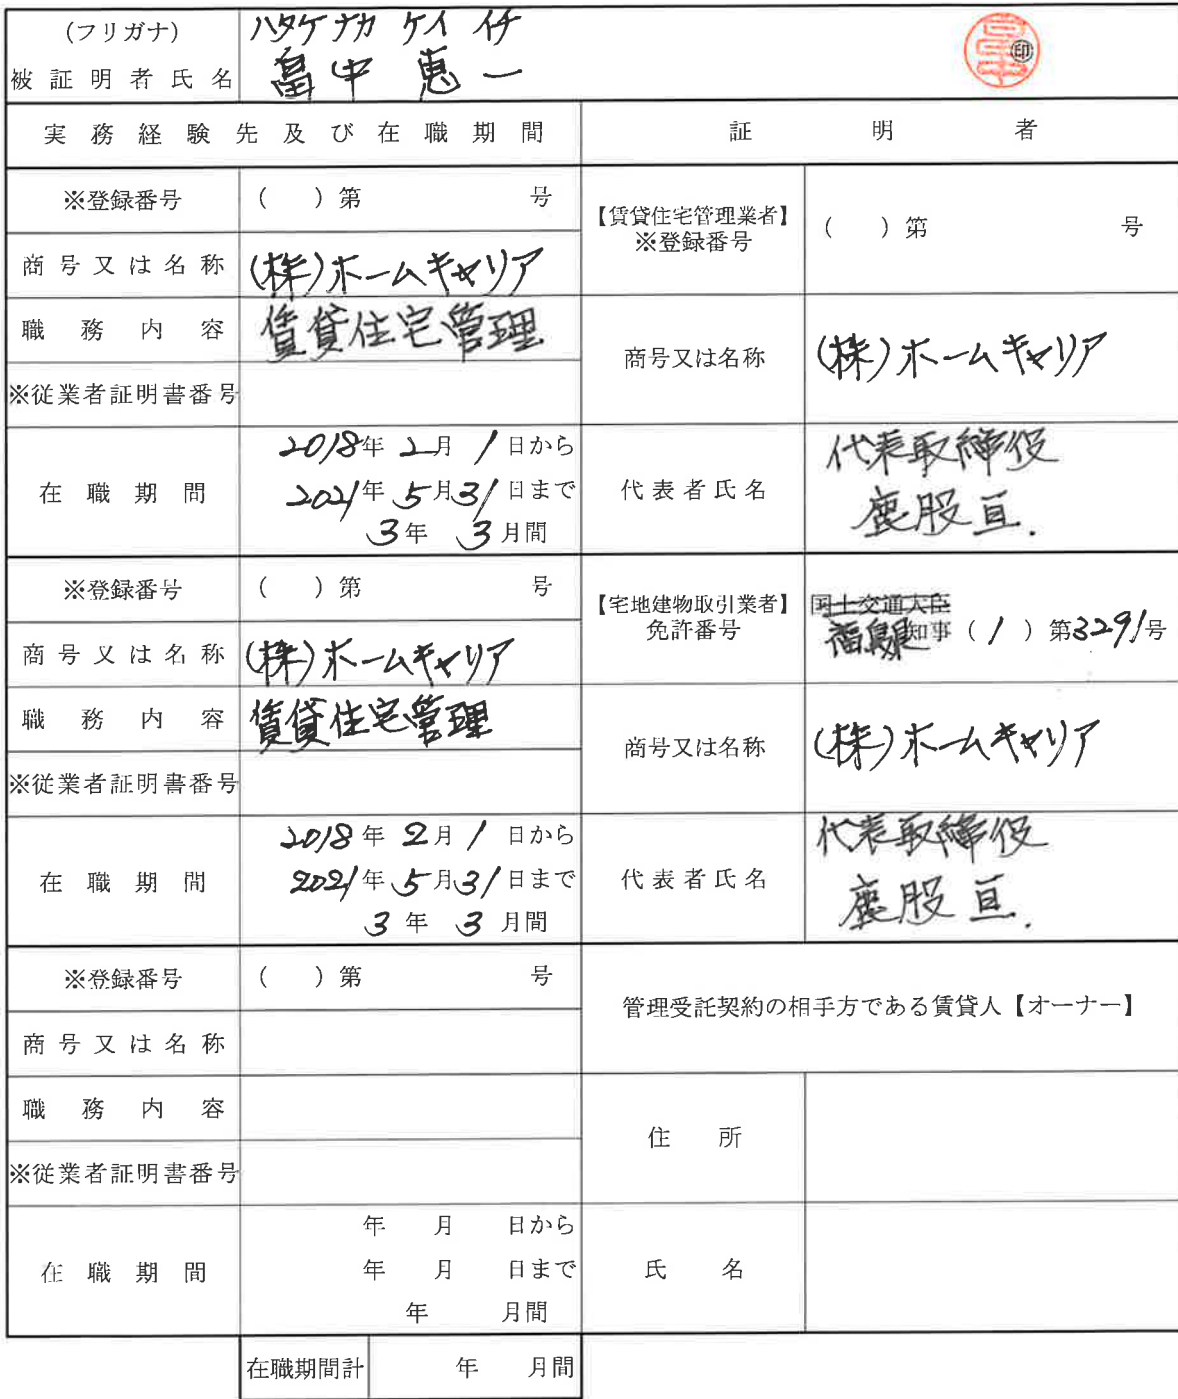 (フリガナ) ハタケナカ ケイイチ
被証明者氏名 畠中 恵一 ㊞
実務経験先及び在職期間 証明者
※登録番号 ( )第 号
商号又は名称 (株)ホームキャリア
職務内容 賃貸住宅管理
※従業者証明書番号
在職期間
2018年2月1日から
2021年5月31日まで
3年 3月間
【賃貸住宅管理業者】
※登録番号 ( )第 号
商号又は名称 (株)ホームキャリア
代表者氏名 代表取締役
鹿股亘.
※登録番号 ( )第 号
商号又は名称 (株)ホームキャリア
職務内容 賃貸住宅管理
※従業者証明書番号
在職期間
2018年2月1日から
2021年5月31日まで
3年 3月間
【宅地建物取引業者】
免許番号
国土交通大臣
福島県知事(1)第3291号
商号又は名称 (株)ホームキャリア
代表者氏名 代表取締役
鹿股亘.
※登録番号 ( )第 号
商号又は名称
職務内容
※従業者証明書番号
在職期間
年 月 日から
年 月 日まで
年 月間
管理受託契約の相手方である賃貸人【オーナー】
住所
氏名
在職期間計 年 月間